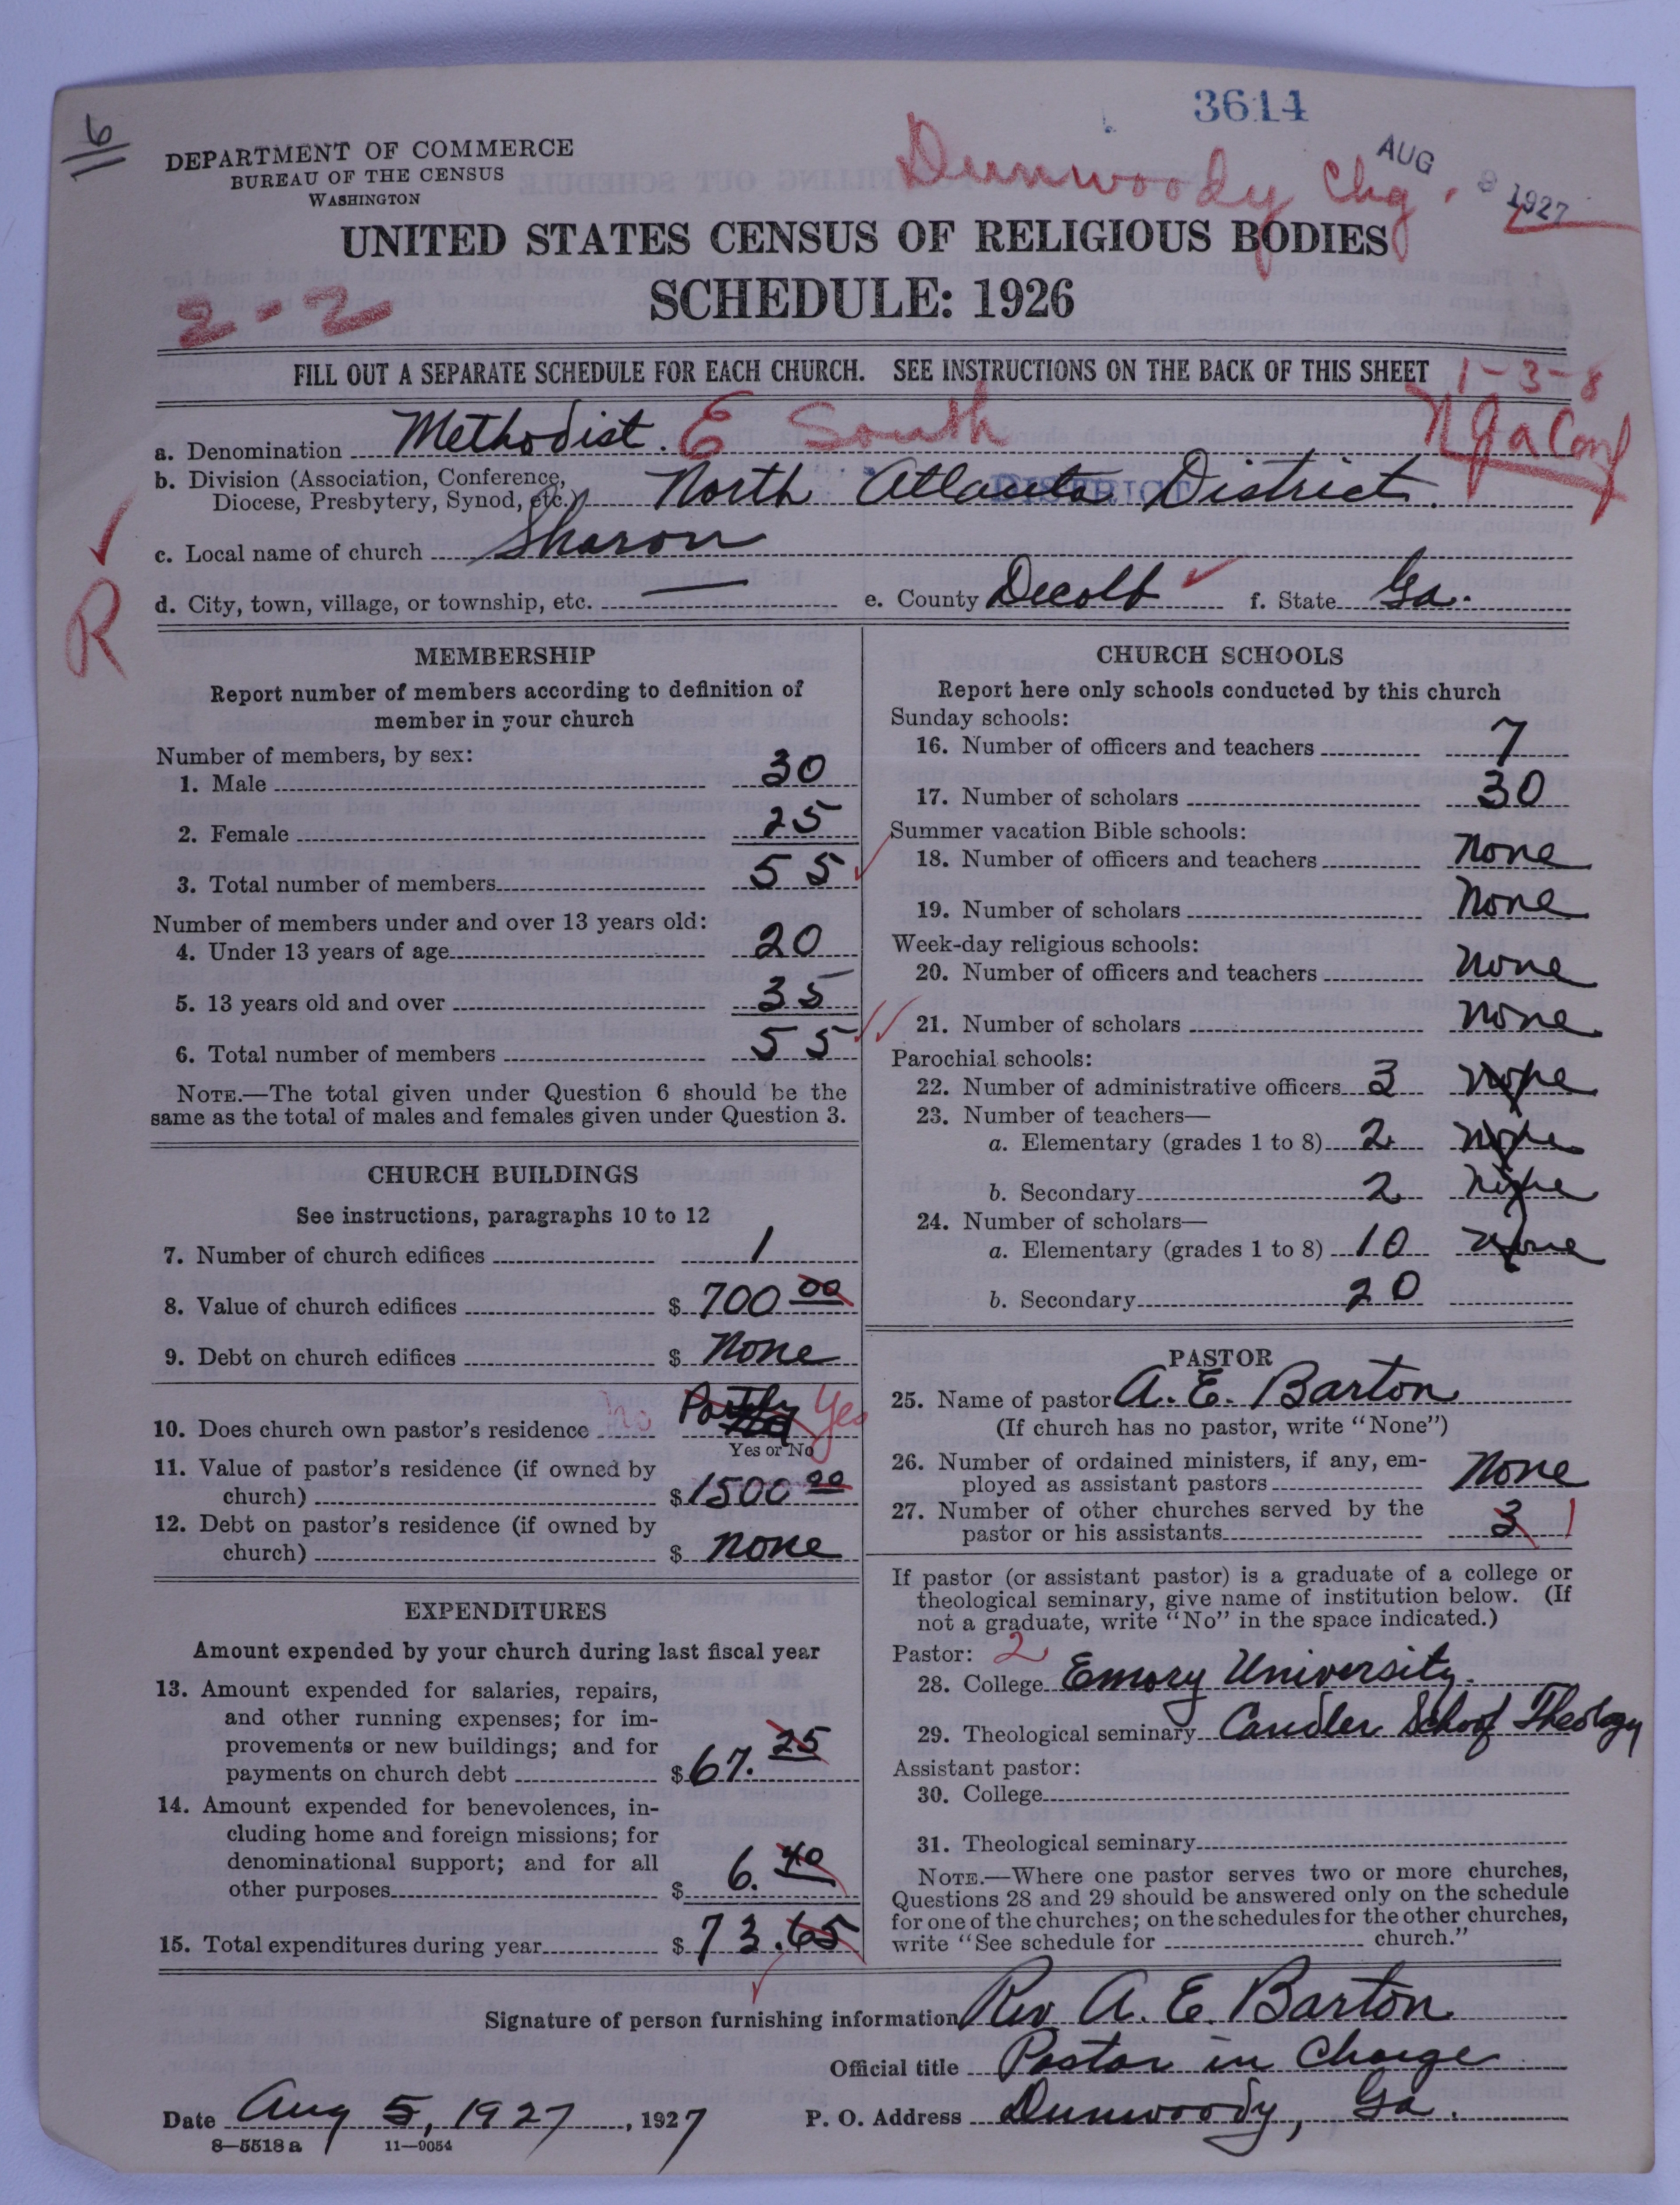 3614
6
DEPARTMENT OF COMMERCE
BUREAU OF THE CENSUS
WASHINGTON
Dunwoody Chg.
AUG 8 1927
UNITED STATES CENSUS OF RELIGIOUS BODIES
SCHEDULE: 1926
2-2
FILL OUT A SEPARATE SCHEDULE FOR EACH CHURCH. SEE INSTRUCTIONS ON THE BACK OF THIS SHEET
1-3-8
N Ga Conf
a. Denomination Methodist. E South
b. Division (Association, Conference,
Diocese, Presbytery, Synod, etc.) North Atlanta District.
DISTRICT
c. Local name of church Sharon
R
d. City, town, village, or township, etc. — e. County Decolb f. State Ga.
MEMBERSHIP
Report number of members according to definition of
member in your church
Number of members, by sex:
1. Male 30
2. Female 25
3. Total number of members 55
Number of members under and over 13 years old:
4. Under 13 years of age 20
5. 13 years old and over 35
6. Total number of members 55
NOTE.—The total given under Question 6 should be the
same as the total of males and females given under Question 3.
CHURCH BUILDINGS
See instructions, paragraphs 10 to 12
7. Number of church edifices 1
8. Value of church edifices $ 700 00
9. Debt on church edifices $ None
10. Does church own pastor's residence no Partly Yes
Yes or No
11. Value of pastor's residence (if owned by
church) $ 1500 00
12. Debt on pastor's residence (if owned by
church) $ none
EXPENDITURES
Amount expended by your church during last fiscal year
13. Amount expended for salaries, repairs,
and other running expenses; for im-
provements or new buildings; and for
payments on church debt $ 67. 25
14. Amount expended for benevolences, in-
cluding home and foreign missions; for
denominational support; and for all
other purposes $ 6. 40
15. Total expenditures during year $ 73.65
CHURCH SCHOOLS
Report here only schools conducted by this church
Sunday schools:
16. Number of officers and teachers 7
17. Number of scholars 30
Summer vacation Bible schools:
18. Number of officers and teachers None
19. Number of scholars None
Week-day religious schools:
20. Number of officers and teachers None
21. Number of scholars None
Parochial schools:
22. Number of administrative officers 3 none
23. Number of teachers—
a. Elementary (grades 1 to 8) 2 none
b. Secondary 2 none
24. Number of scholars—
a. Elementary (grades 1 to 8) 10 none
b. Secondary 20
PASTOR
25. Name of pastor A. E. Barton
(If church has no pastor, write "None")
26. Number of ordained ministers, if any, em-
ployed as assistant pastors None
27. Number of other churches served by the
pastor or his assistants 3 1
If pastor (or assistant pastor) is a graduate of a college or
theological seminary, give name of institution below. (If
not a graduate, write "No" in the space indicated.)
Pastor: 2
28. College Emory University.
29. Theological seminary Candler School Theology
Assistant pastor:
30. College
31. Theological seminary
NOTE.—Where one pastor serves two or more churches,
Questions 28 and 29 should be answered only on the schedule
for one of the churches; on the schedules for the other churches,
write "See schedule for church."
Signature of person furnishing information Rev A. E. Barton
Official title Pastor in Charge
Date Aug 5, 1927, 1927 P. O. Address Dunwoody, Ga.
8—5518 a 11—9054